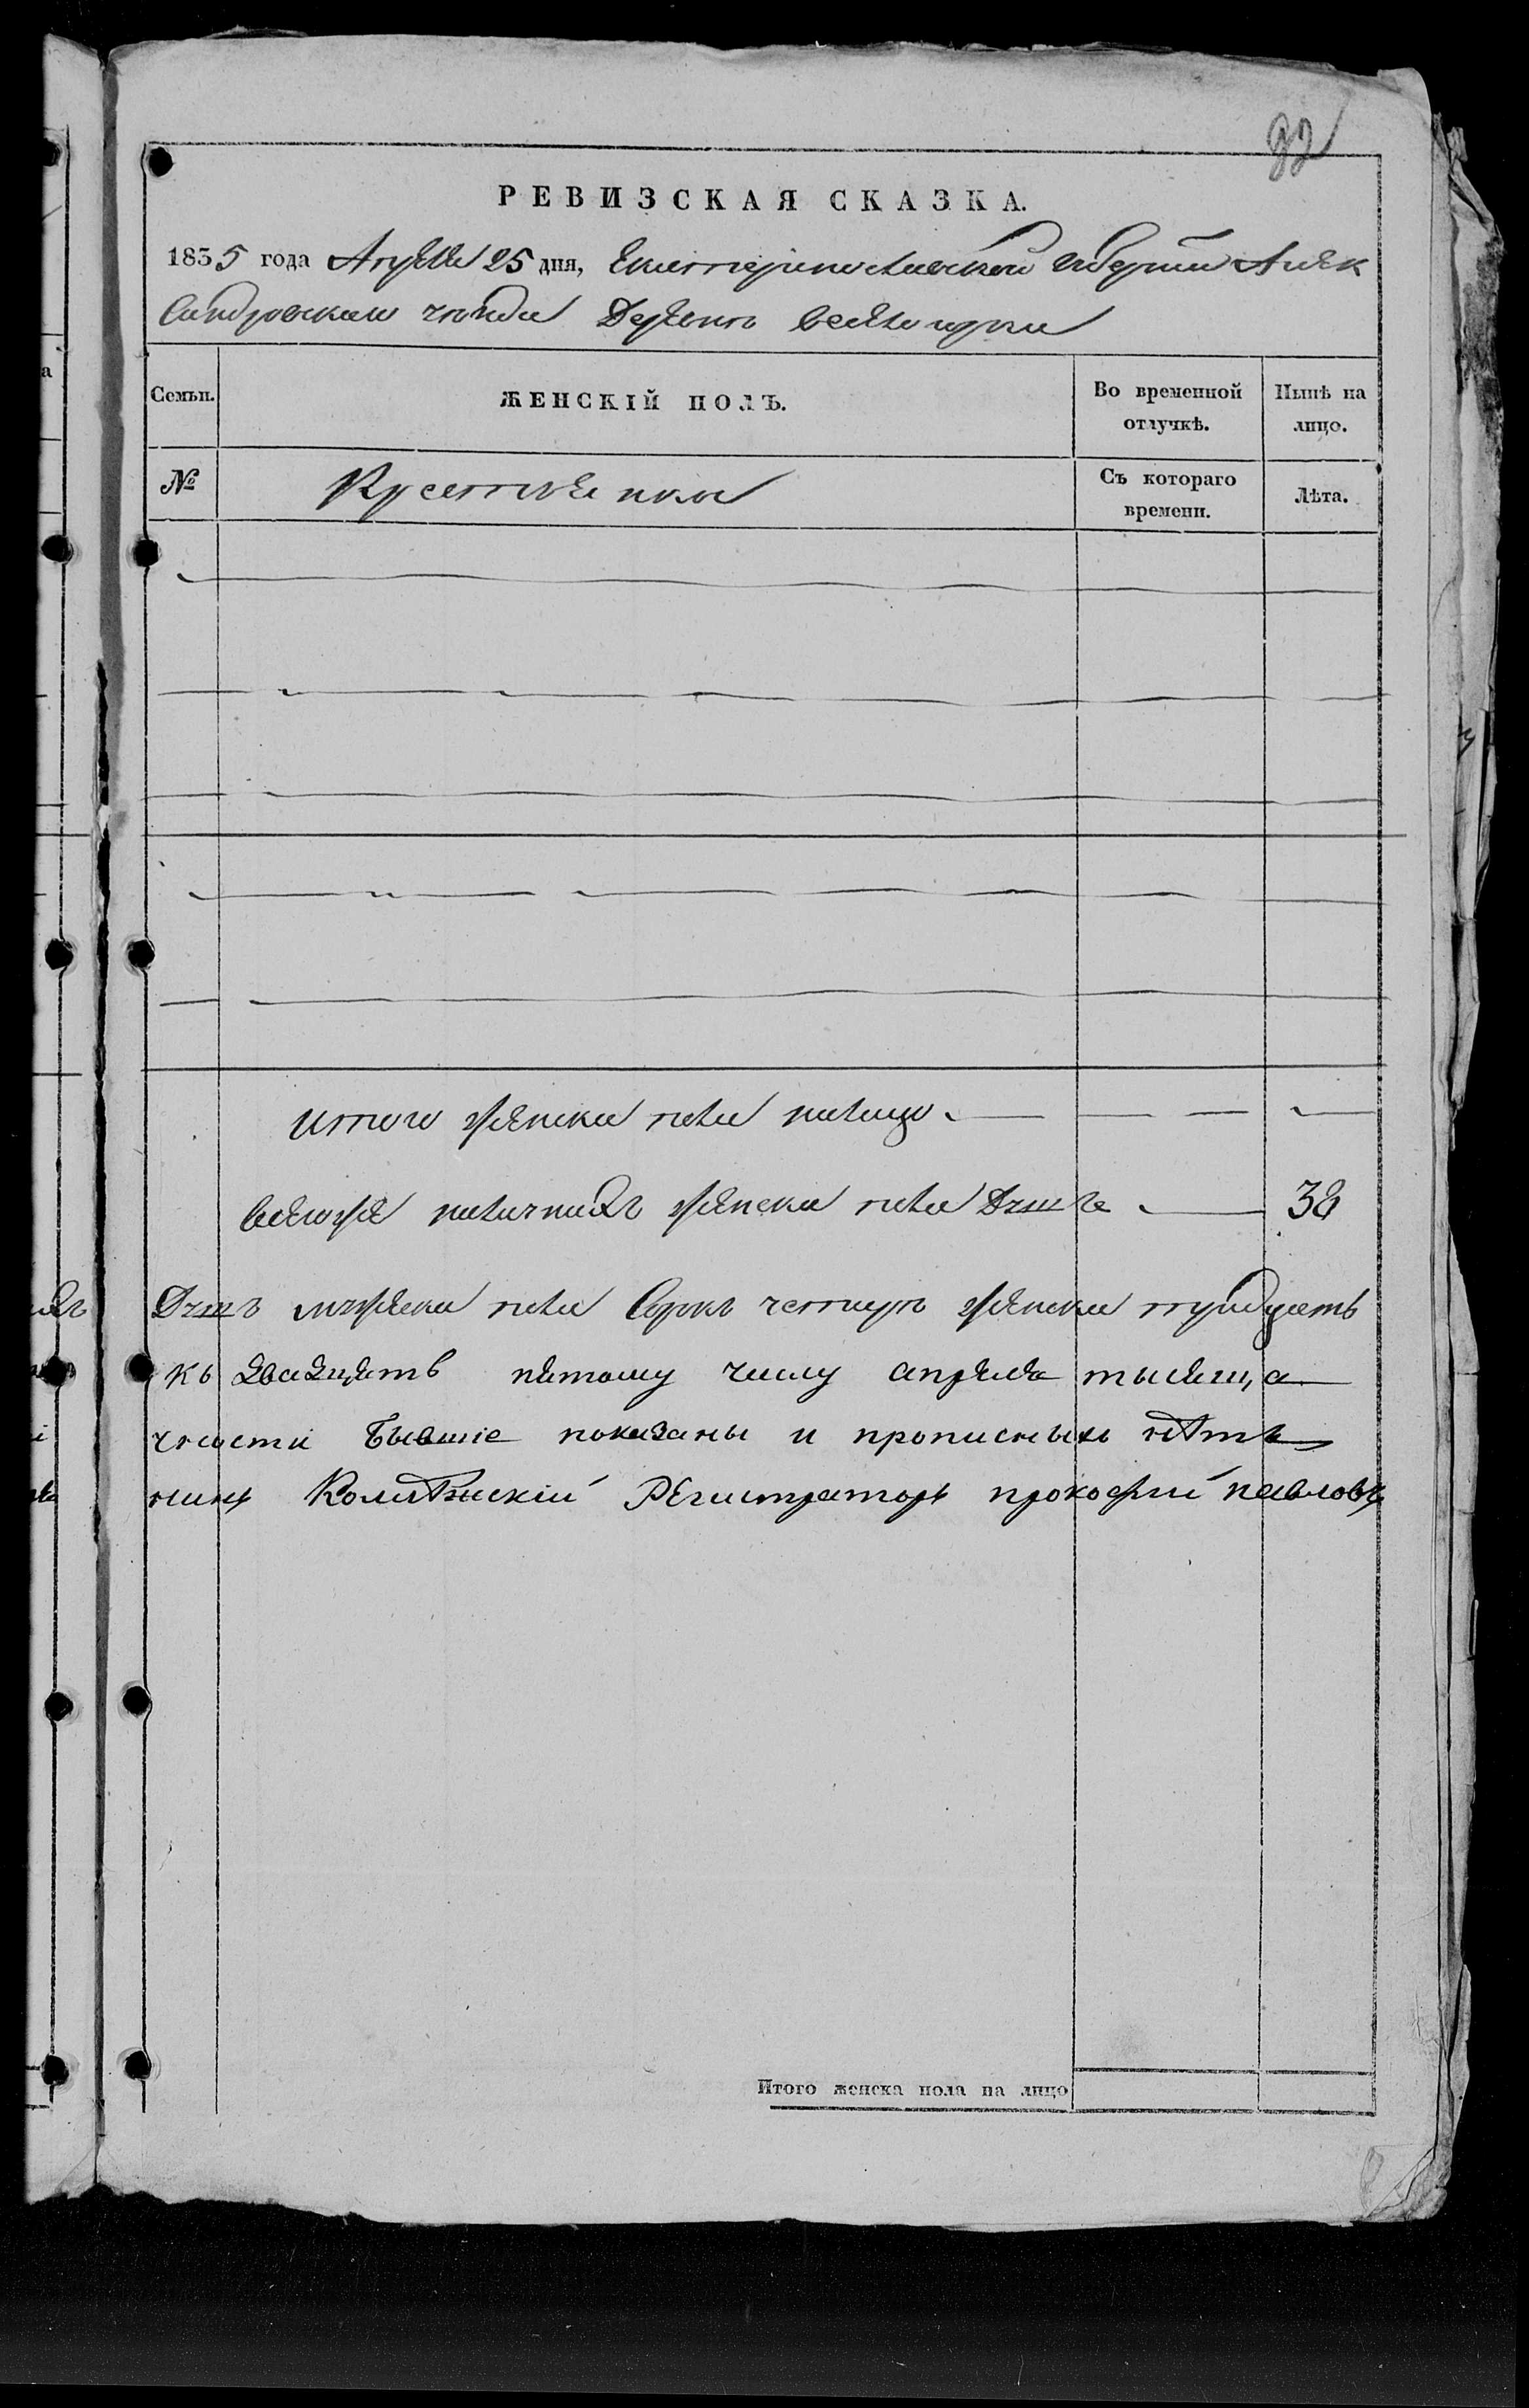 РЕВИЗСКАЯ СКАЗКА.
1835 года Апреля 25 дня, Екатеринославской губернии Алек
сандровскаго уезда Деревни
Семьи.
ЖЕНСКІЙ ПОЛЪ.
Во временной отлучкѣ.
Нынѣ на лицо.
№
Съ котораго времени.
Лѣта.
итого женска пола налицо
всегоже наличныхъ женска пола Душъ 38
Душъ мужеска пола сорокъ четыре женска тридцать
къ двадцать пятому числу апреля тысяща
бывшіе показаны и прописныхъ нѣтъ
Колѣжскій Регистраторъ прокофии павловъ
Итого женска пола на лицо